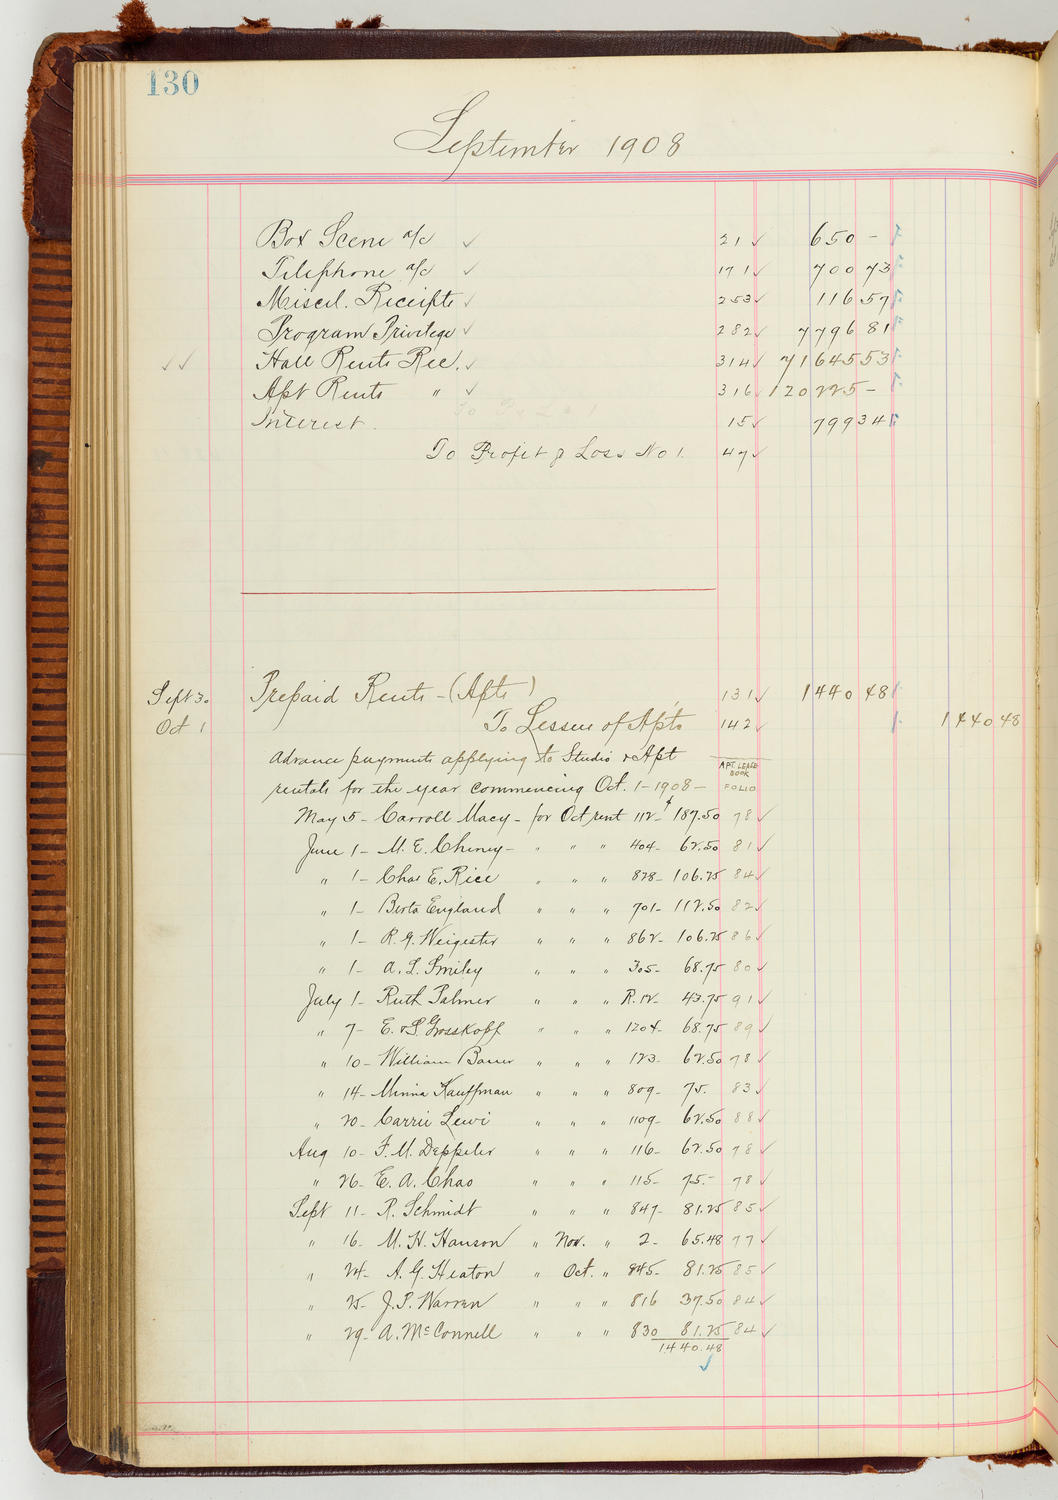 130
September 1908
Box Scene a/c ✓ 21 ✓ 650 -
Telephone a/c ✓ 171 ✓ 700 73
Miscel. Receipts ✓ 253 ✓ 116 57
Program Privilege ✓ 282 ✓ 7796 81
✓✓ Hall Rents Rec. ✓ 314 ✓ 71645 53
Apt Rents " ✓ 316 ✓ 120225 -
Interest. 15 ✓ 799 34
To Profit & Loss No 1. 47 ✓
Sept 30 Prepaid Rents - (Apts) 131 ✓ 1440 48
Oct 1 To Lessees of Apts 142 ✓ 1440 48
Advance payments applying to Studio & Apt
APT. LEASE BOOK FOLIO
rentals for the year commencing Oct. 1 - 1908 -
May 5 - Carroll Macy - for Oct rent 112 - $187.50 78 ✓
June 1 - M. E. Cheney - " " " 404 - 62.50 81 ✓
" 1 - Chas E. Rice " " " 828 - 106.25 84 ✓
" 1 - Berta England " " " 701 - 112.50 82 ✓
" 1 - R. G. Weigester " " " 862 - 106.25 86 ✓
" 1 - A. L. Smiley " " " 305 - 68.75 80 ✓
July 1 - Ruth Palmer " " " R.12 - 43.75 91 ✓
" 7 - E. & S. Grosskopf " " " 1204 - 68.75 89 ✓
" 10 - William Bauer " " " 123 - 62.50 78 ✓
" 14 - Minna Kauffman " " " 809 - 75. 83 ✓
" 20 - Carrie Lewi " " " 1109 - 62.50 88 ✓
Aug 10 - F. M. Deppeler " " " 116 - 62.50 78 ✓
" 26 - E. A. Chao " " " 115 - 75. - 78 ✓
Sept 11 - R. Schmidt " " " 847 - 81.25 85 ✓
" 16 - M. H. Hanson " Nov. " 2 - 65.48 77 ✓
" 24 - A. G. Heaton " Oct. " 845 - 81.25 85 ✓
" 25 - J. P. Warren " " " 816 37.50 84 ✓
" 29 - A. McConnell " " " 830 81.25 84 ✓
1440.48
✓